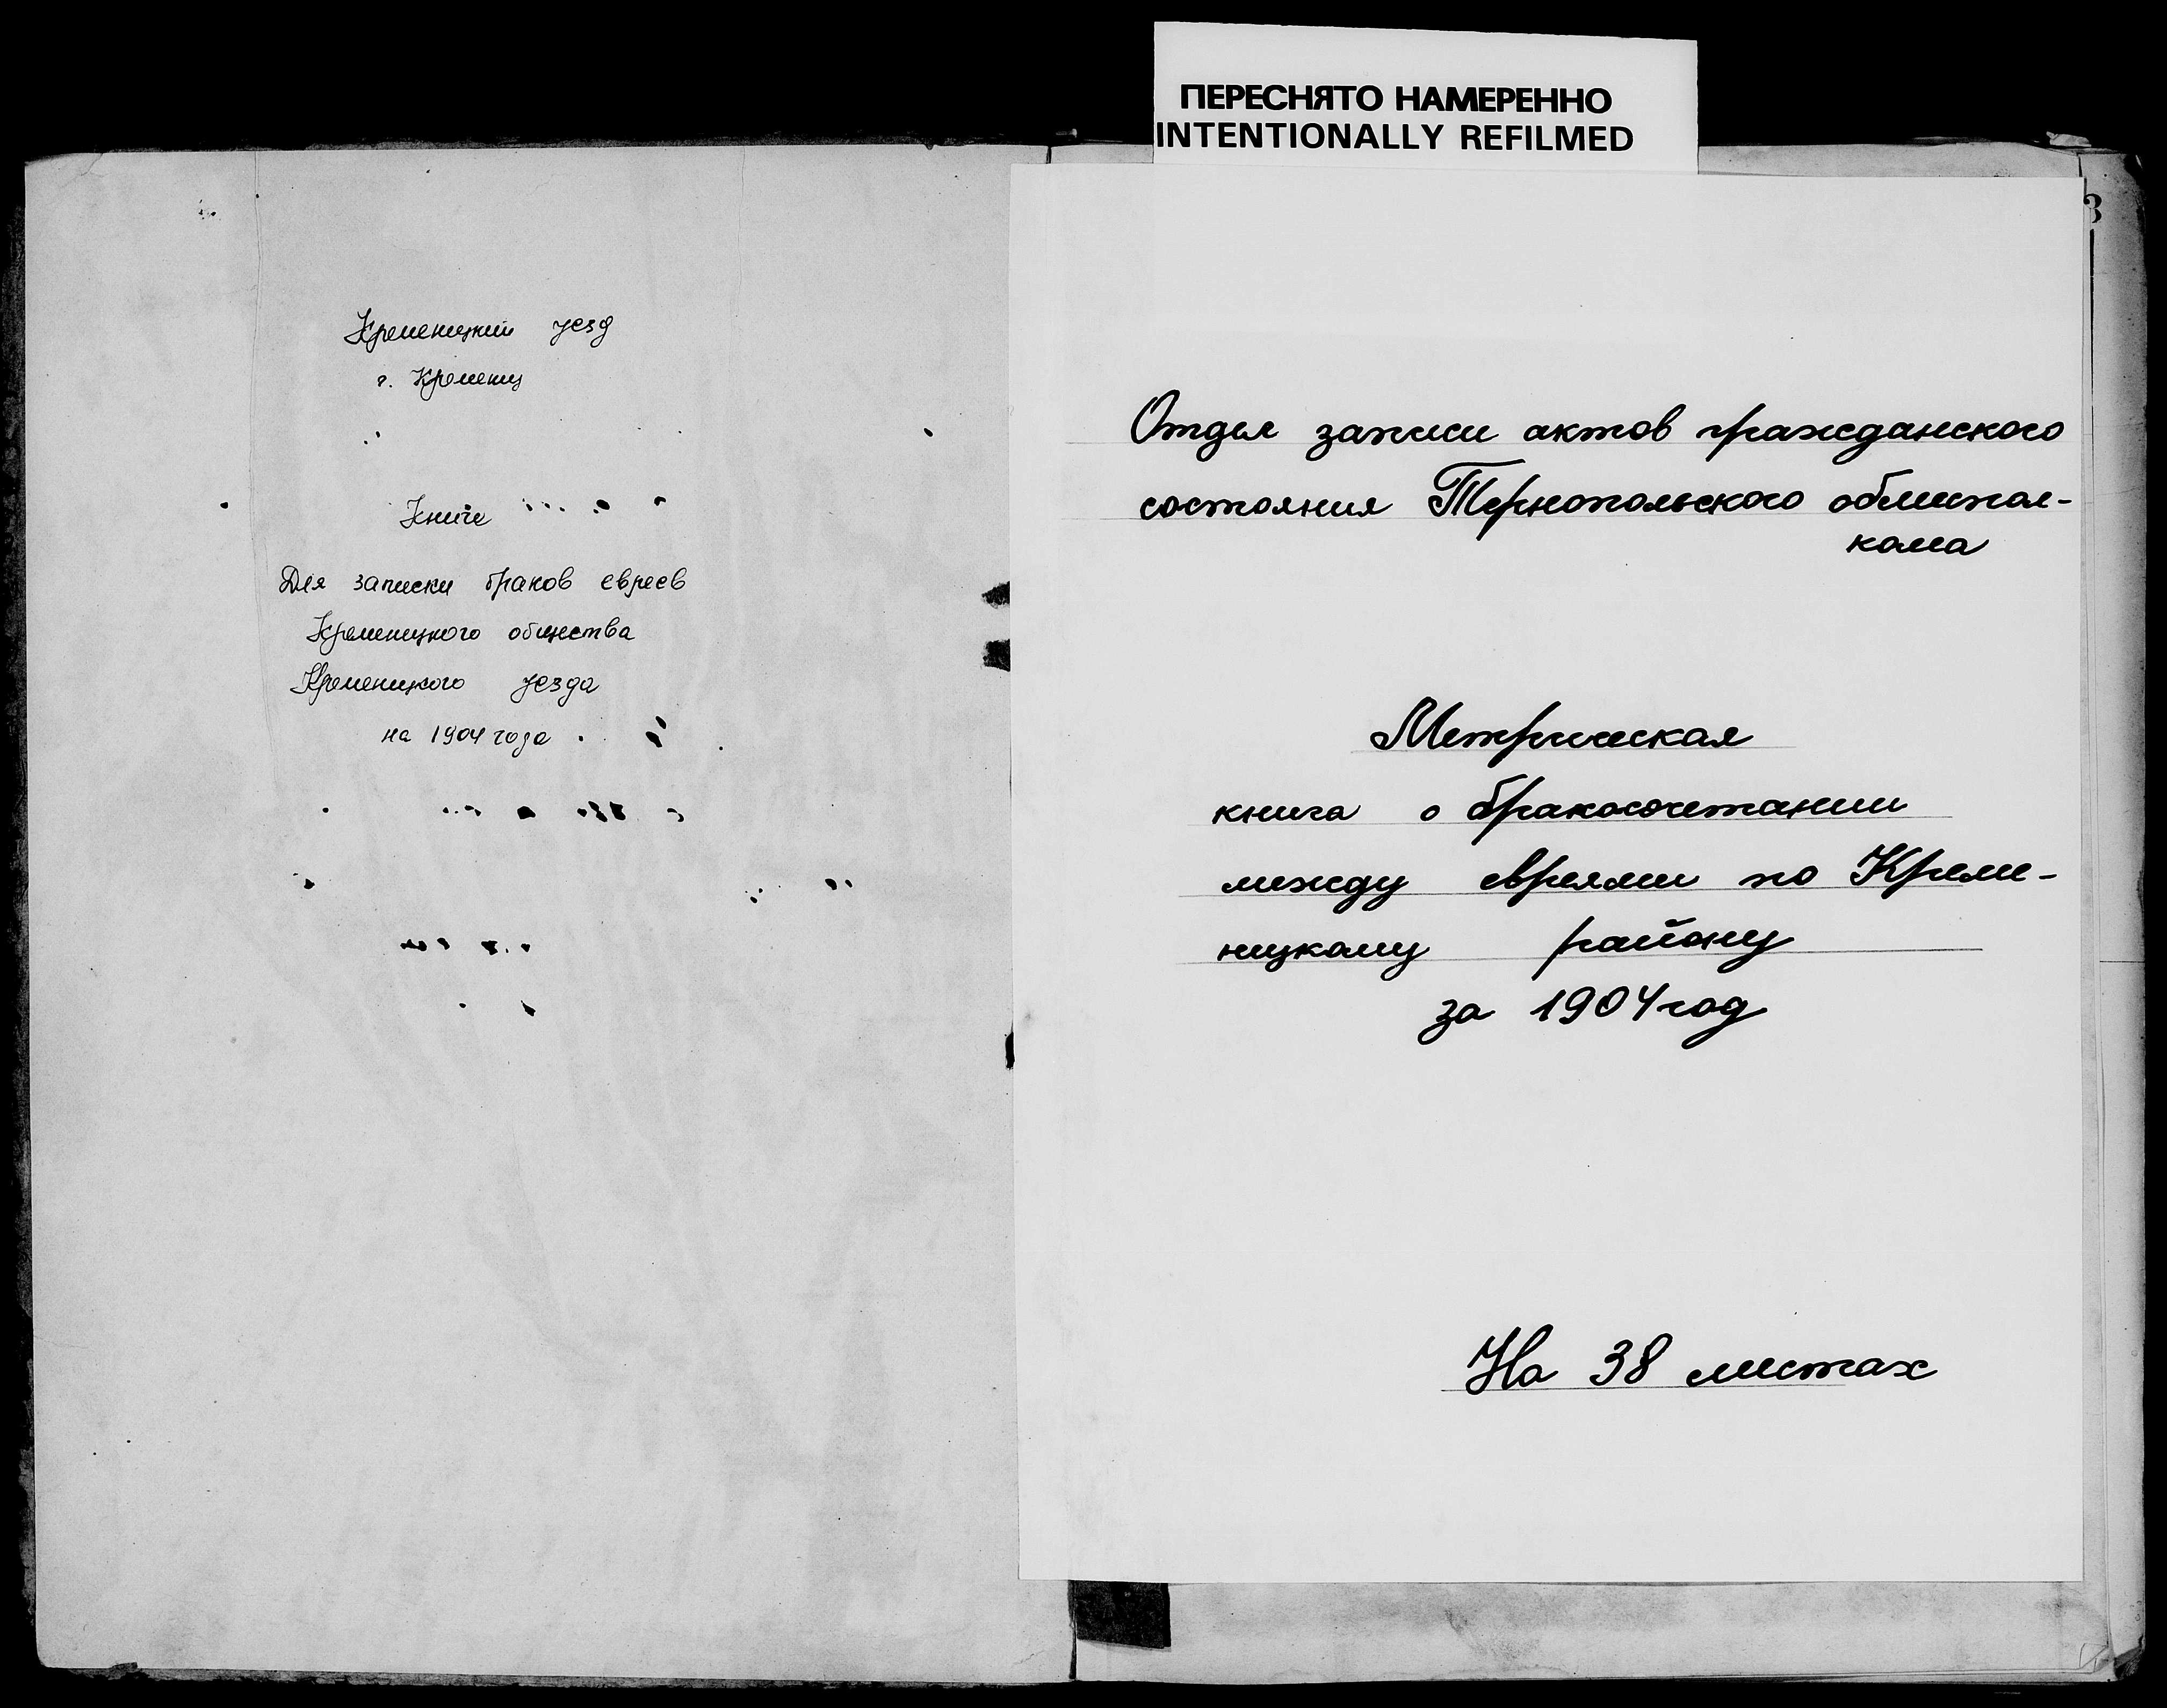 ПЕРЕСНЯТО НАМЕРЕННО
INTENTIONALLY REFILMED
Кременецкий уезд
г. Кременец
Книга
Для записки браков евреев
Кременецкого общества
Кременецкого уезда
на 1904 года
3
Отдел записи актов гражданского
состояния Тернопольского облисполкома
Метрическая
книга о бракосочетании
между евреями по Креме-
нецкому району
за 1904 год
На 38 листах